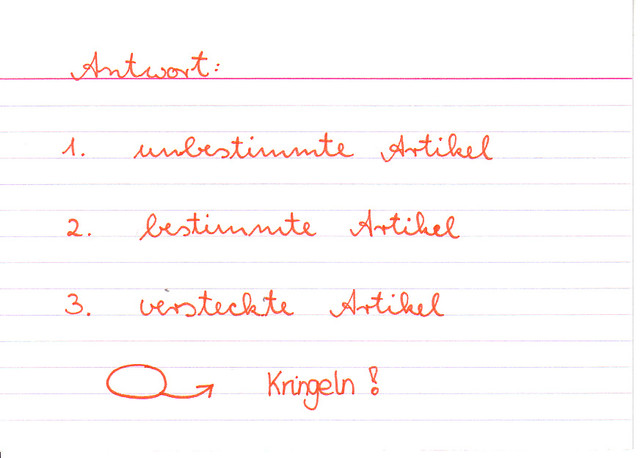 Antwort:
1. unbestimmte Artikel
2. bestimmte Artikel
3. versteckte Artikel
Kringeln!